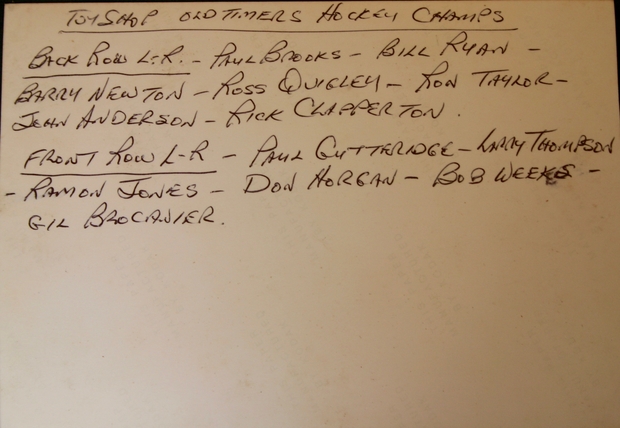 TOY SHOP OLDTIMERS HOCKEY CHAMPS
BACK ROW L-R. - PAUL BROOKS - BILL RYAN -
BARRY NEWTON - ROSS QUIGLEY - RON TAYLOR -
JOHN ANDERSON - RICK CLAPPERTON.
FRONT ROW L-R - PAUL GUTTERIDGE - LARRY THOMPSON
- RAMON JONES - DON HORGAN - BOB WEEKS -
GIL BROCANIER.